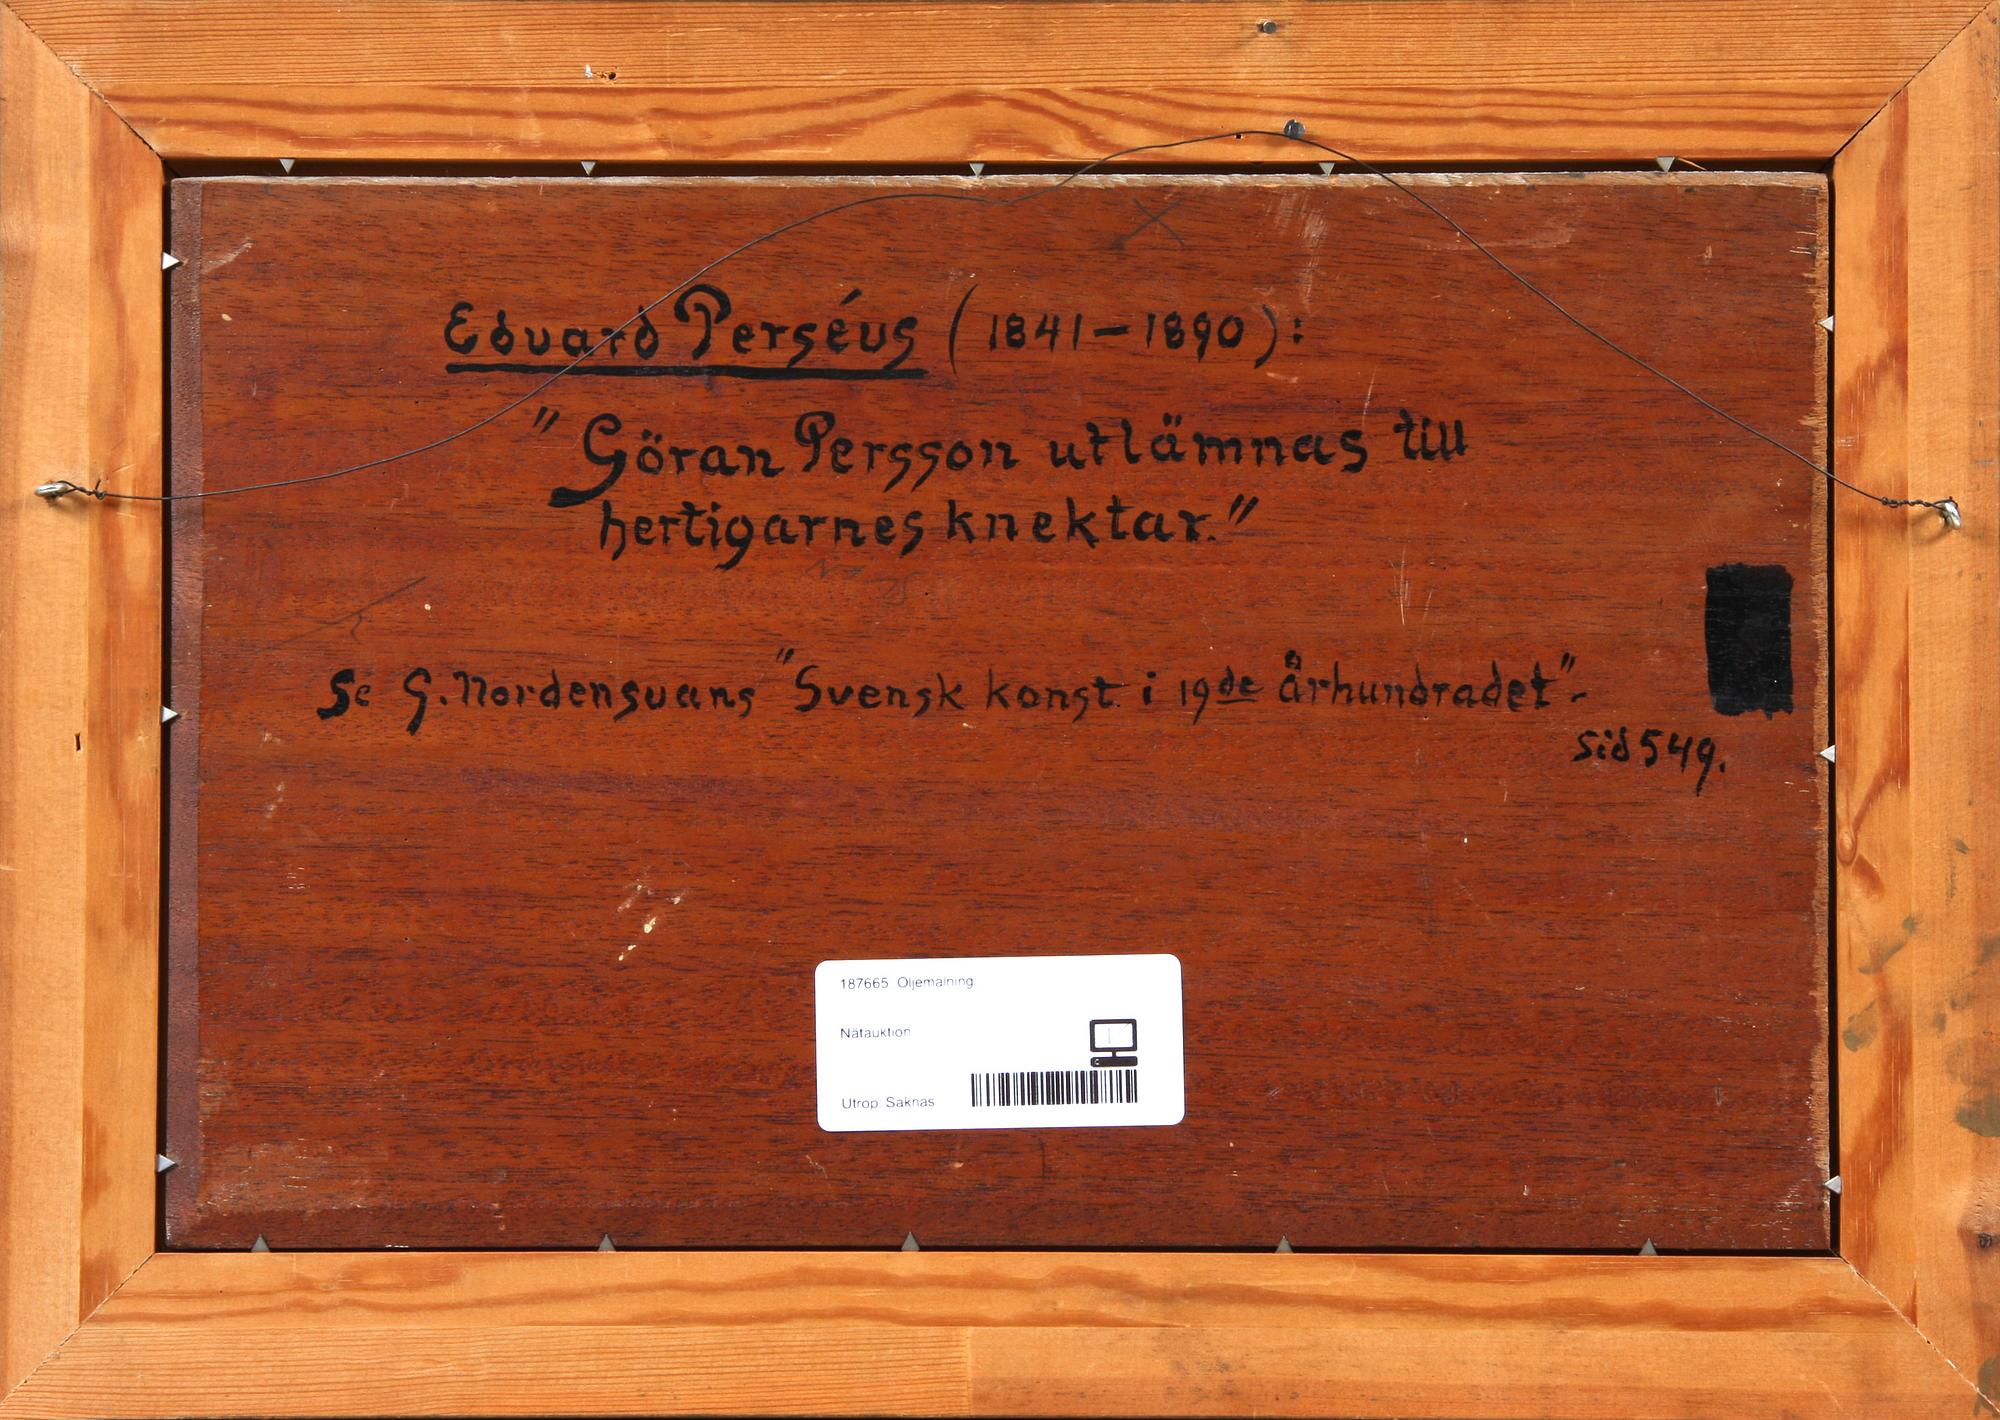 Eduard Perséus (1841–1890):
"Göran Persson utlämnas till
hertigarnes knektar."
Se G. Nordensvans "Svensk konst i 19de århundradet"-
sid 549.
187665. Oljemålning
Nätauktion
Utrop: Saknas